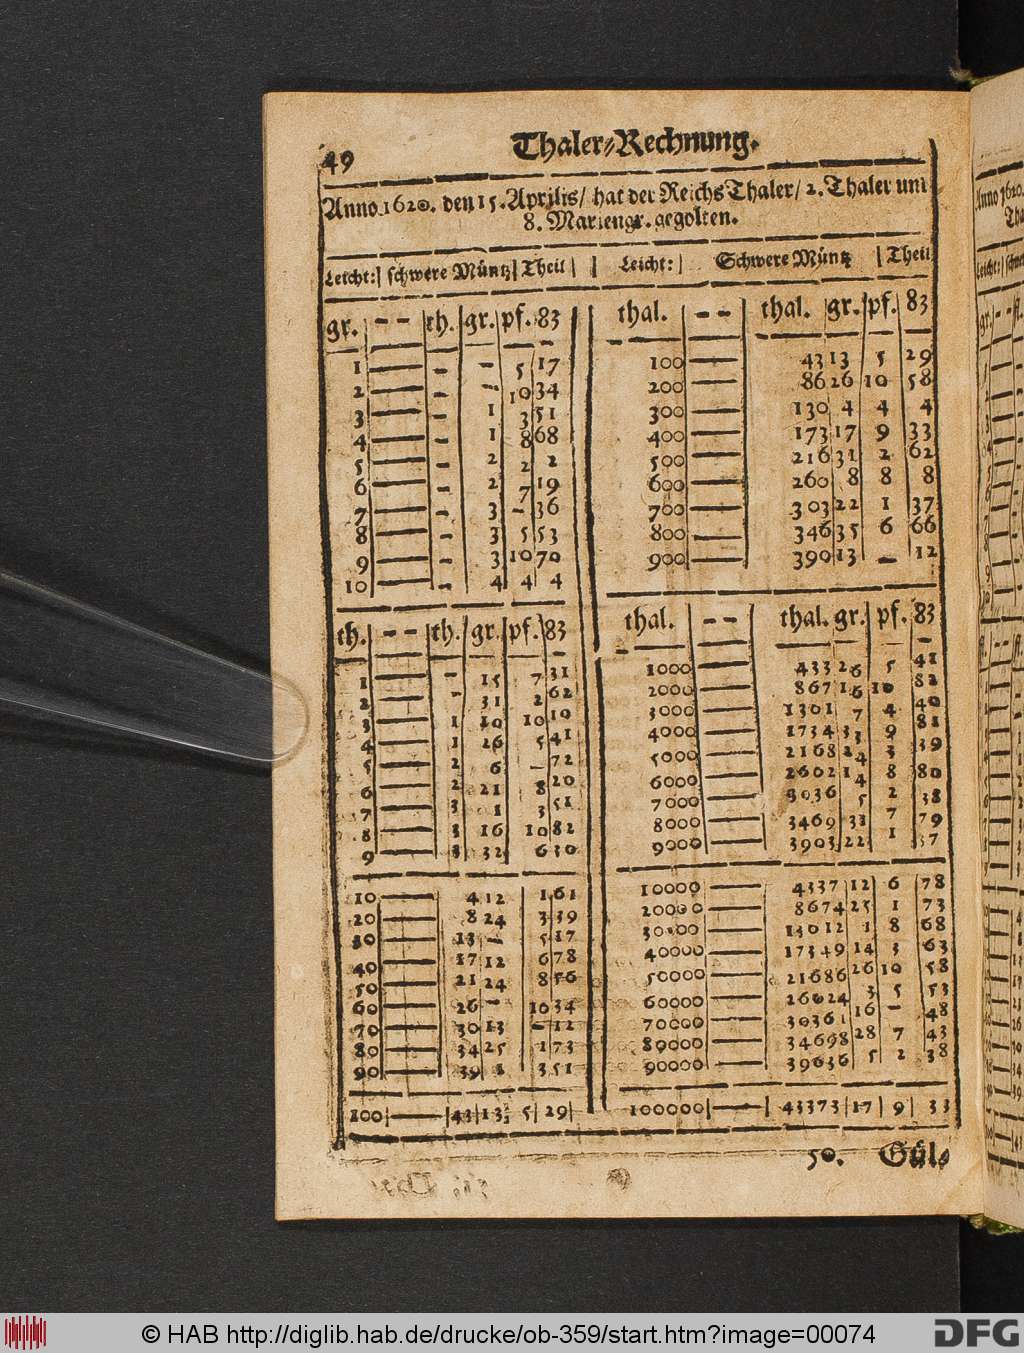 49
Thaler-Rechnung.
Anno 1620. den 15. Aprilis/ hat der ReichsThaler/ 2. Thaler und
8. Mariengr. gegolten.
Leicht: | schwere Müntz | Theil | | Leicht: | Schwere Müntz | Theil
gr. | - - | th. | gr. | pf. | 83 | thal. | - - | thal. | gr. | pf. | 83
1 — - - 5 17 | 100 — 43 13 5 29
2 — - - 10 34 | 200 — 86 26 10 58
3 — - 1 3 51 | 300 — 130 4 4 4
4 — - 1 8 68 | 400 — 173 17 9 33
5 — - 2 2 2 | 500 — 216 31 2 62
6 — - 2 7 19 | 600 — 260 8 8 8
7 — - 3 - 36 | 700 — 303 22 1 37
8 — - 3 5 53 | 800 — 346 35 6 66
9 — - 3 10 70 | 900 — 390 13 - 12
10 — - 4 4 4
th. | - - | th. | gr. | pf. | 83 | thal. | - - | thal. | gr. | pf. | 83
1 — - 15 7 31 | 1000 — 433 26 5 41
2 — - 31 2 62 | 2000 — 867 16 10 82
3 — 1 10 10 10 | 3000 — 1301 7 4 40
4 — 1 26 5 41 | 4000 — 1734 33 9 81
5 — 2 6 - 72 | 5000 — 2168 24 3 39
6 — 2 21 8 20 | 6000 — 2602 14 8 80
7 — 3 1 3 51 | 7000 — 3036 5 2 38
8 — 3 16 10 82 | 8000 — 3469 31 7 79
9 — 3 32 6 30 | 9000 — 3903 22 1 37
10 — 4 12 1 61 | 10000 — 4337 12 6 78
20 — 8 24 3 39 | 20000 — 8674 25 1 73
30 — 13 - 5 17 | 30000 — 13012 1 8 68
40 — 17 12 6 78 | 40000 — 17349 14 3 63
50 — 21 24 8 56 | 50000 — 21686 26 10 58
60 — 26 - 10 34 | 60000 — 26024 3 5 53
70 — 30 13 - 12 | 70000 — 30361 16 - 48
80 — 34 25 1 73 | 80000 — 34698 28 7 43
90 — 39 1 3 51 | 90000 — 39636 5 2 38
100 — 43 13 5 29 | 100000 — 43373 17 9 33
50. Gül-
Anno 1620.
Tha
Leicht:
gr.
© HAB http://diglib.hab.de/drucke/ob-359/start.htm?image=00074
DFG